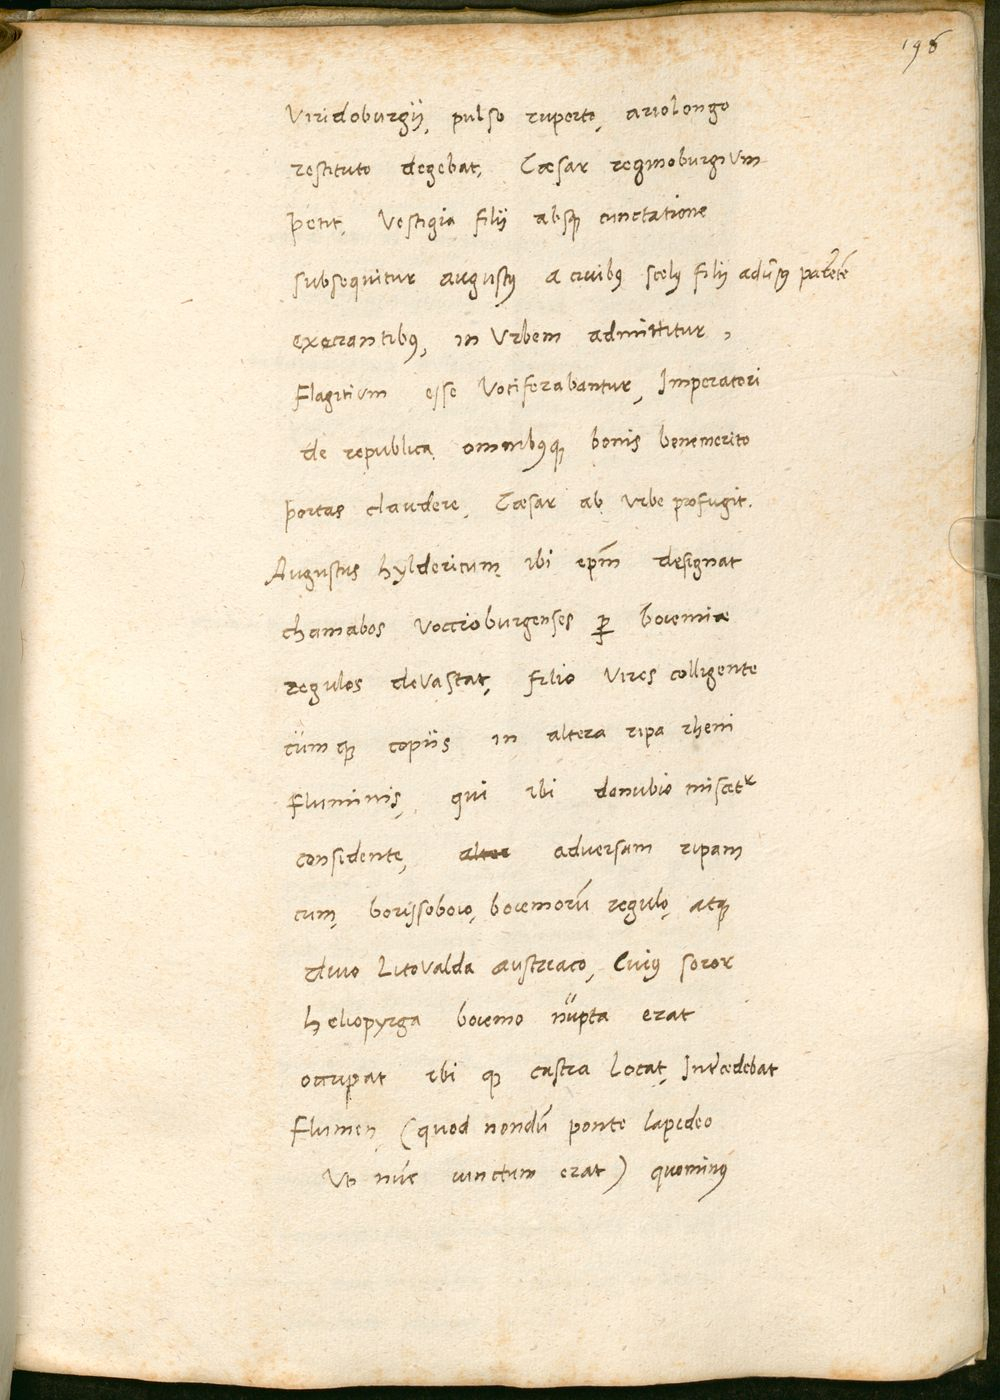 198
Viridoburgij, pulso ruperto, ariolongo
restituto degebat, Cæsar reginoburgium
petit, Vestigia filij absq; cunctatione
subsequitur augustꝰ a ciuibꝰ scelꝰ filij adũsꝰ parētē
exęcrantibꝰ, in Vrbem admittitur,
Flagitium esse Vociferabantur, Imperatori
de republica omnibꝰq; bonis benemerito
portas claudere, Cæsar ab Vrbe profugit.
Augustus hyldericum ibi ep̃m designat
chamabos Voccioburgenses ꝑ boiemiæ
regulos deVastat, filio Vires colligente
cum q; copijs in altera ripa rheni
Fluminis, qui ibi danubio miscetʳ
considente, alter adversam ripam
cum, borissoboio, boiemorũ regulo, atq;
diuo LitoValda austriaco, Cuiꝰ soror
heliopyrga boiemo nupta erat
occupat ibi q; castra locat, Intercedebat
Flumen, (quod nondũ ponte lapideo
Vt nũc iunctum erat) quominꝰ